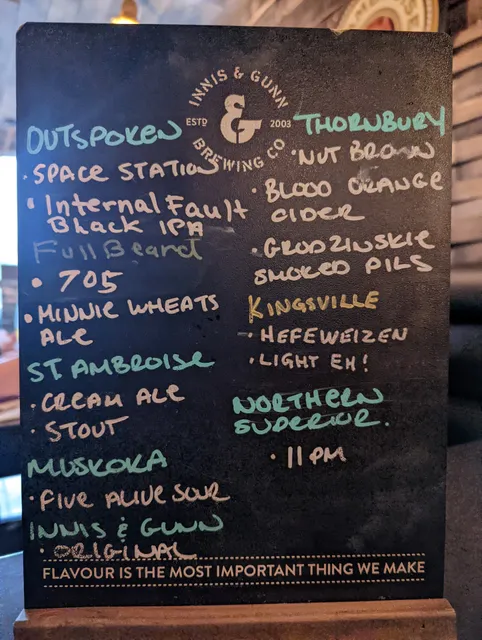 INNIS & GUNN
ESTD & 2003
BREWING CO
OUTSPOKEN
· SPACE STATION
· Internal Fault
Bhack IPA
Full Beard
· 705
· MINNIE WHEATS
ALE
ST AMBROISE
· CREAM ALE
· STOUT
MUSKOKA
· FIVE ALIVE SOUR
INNIS & GUNN
· ORIGINAL
THORNBURY
· NUT BROWN
· BLOOD ORANGE
CIDER
· GRODZINSKIE
SMOKED PILS
KINGSVILLE
- HEFEWEIZEN
· LIGHT EH!
NORTHERN
SUPERIOR.
· 11 PM
FLAVOUR IS THE MOST IMPORTANT THING WE MAKE